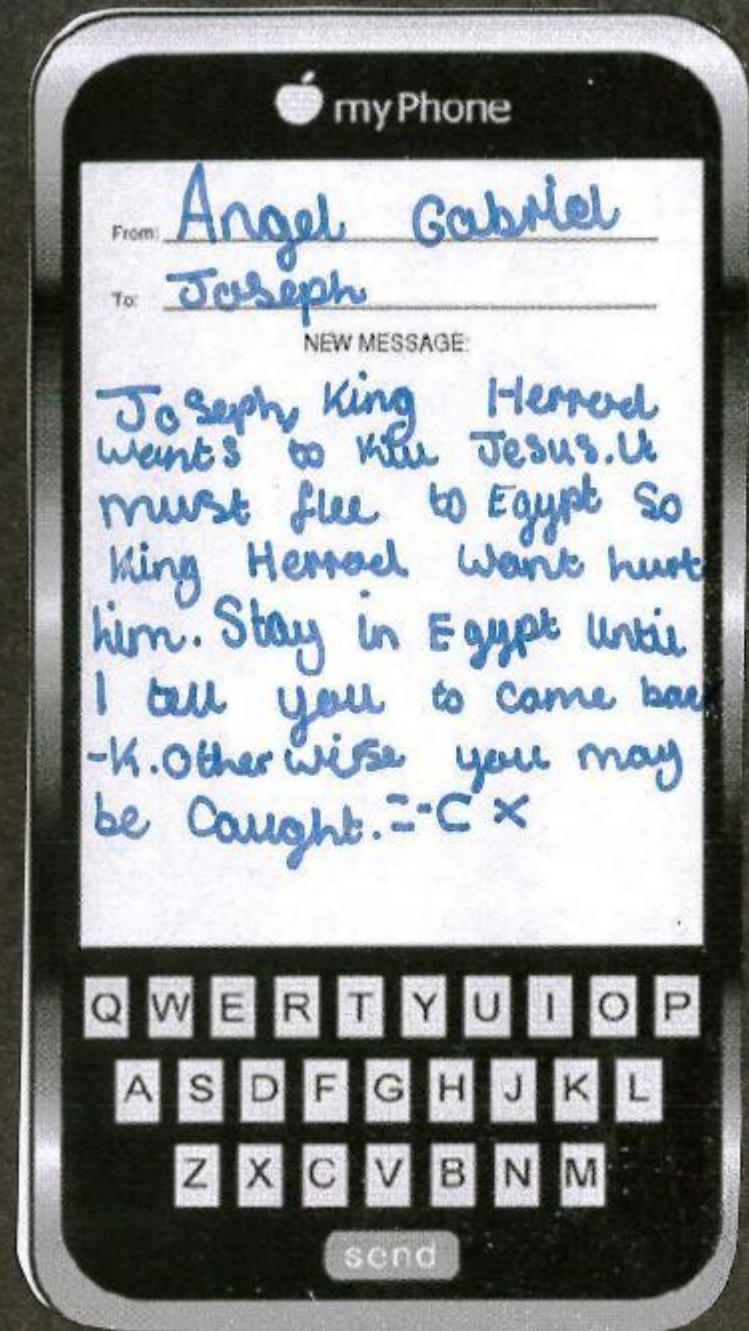 myPhone
From: Angel Gabriel
To: Joseph
NEW MESSAGE:
Joseph, King Herrod
wants to kill Jesus. U
must flee to Egypt So
King Herrod wont hurt
him. Stay in Egypt until
I tell you to come bac
-K. Otherwise you may
be Caught. :-C X
Q W E R T Y U I O P
A S D F G H J K L
Z X C V B N M
send